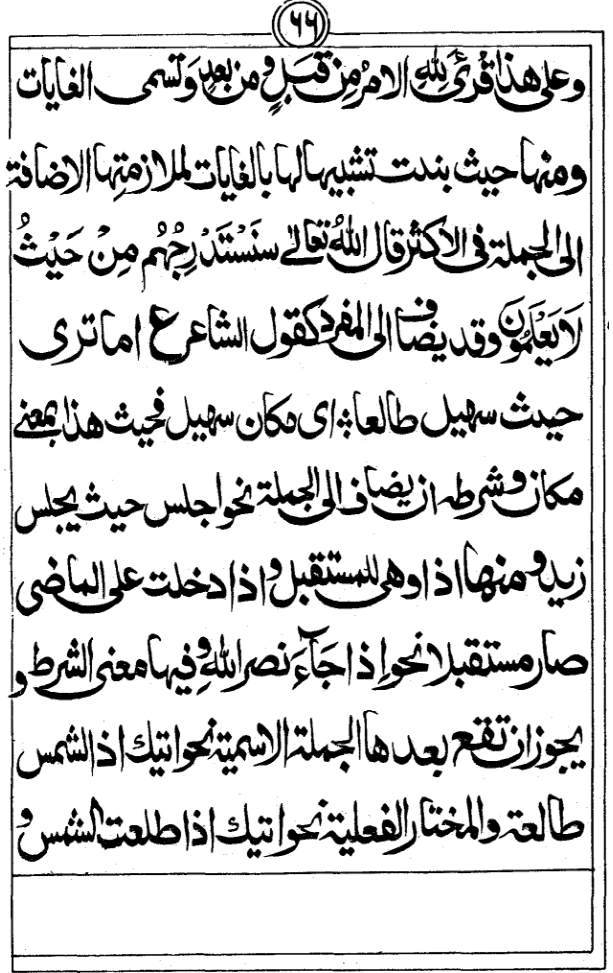 ٦٦
وعلى هذا قُرِئَ لِلّٰهِ الامرُ مِن قَبلٍ ومن بعدٍ وتسمى الغايات
ومنها حيث بنيت تشبيها لها بالغايات لملازمتها الاضافة
الى الجملة فى الاكثر قال اللهُ تعالٰى سَنَسْتَدْرِجُهُم مِنْ حَيْثُ
لَا يَعْلَمُوْنَ وقد يضاف الى المفرد كقول الشاعر ع اما ترى
حيث سهيل طالعا ؛ اى مكان سهيل فحيث هذا بمعنى
مكان وشرطه ان يضاف الى الجملة نحو اجلس حيث يجلس
زيد ومنها اذا وهى للمستقبل واذا دخلت على الماضى
صار مستقبلا نحو اِذا جَآءَ نصر اللهِ وفيها معنى الشرط و
يجوز ان تقع بعدها الجملة الاسمية نحو اتيك اذا الشمس
طالعة والمختار الفعلية نحو اتيك اذا طلعت الشمس و